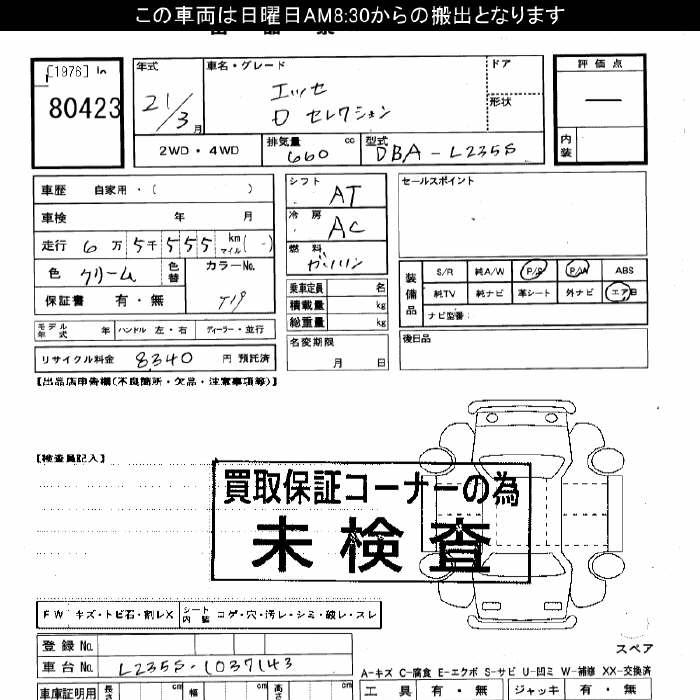 この車両は日曜日AM8:30からの搬出となります
[1976] ln
80423
年式 21/3月
車名・グレード エッセ
D セレクション
ドア
形状
評価点 —
内装
2WD・4WD
排気量 660 cc
型式 DBA-L235S
車歴 自家用・( )
車検 年 月
走行 6万5千555 km マイル (-)
色 クリーム 色替 カラーNo. T19
保証書 有・無
モデル年式 年 ハンドル 左・右 ディーラー・並行
リサイクル料金 8340 円 預託済
シフト AT
冷房 AC
燃料 ガソリン
乗車定員 名
積載量 kg
総重量 kg
名変期限
月 日
セールスポイント
装備品 S/R 純A/W P/S P/W ABS
純TV 純ナビ 革シート 外ナビ エアB
ナビ型番:
後日品
【出品店申告欄(不良箇所・欠品・注意事項等)】
【検査員記入】
買取保証コーナーの為
未検査
FW キズ・トビ石・割レX シート内装 コゲ・穴・汚レ・シミ・破レ・スレ
スペア
登録No.
車台No. L235S-1037143
A-キズ C-腐食 E-エクボ S-サビ U-凹ミ W-補修 XX-交換済
車庫証明用 長さ cm 幅 cm 高さ cm
工具 有・無 ジャッキ 有・無